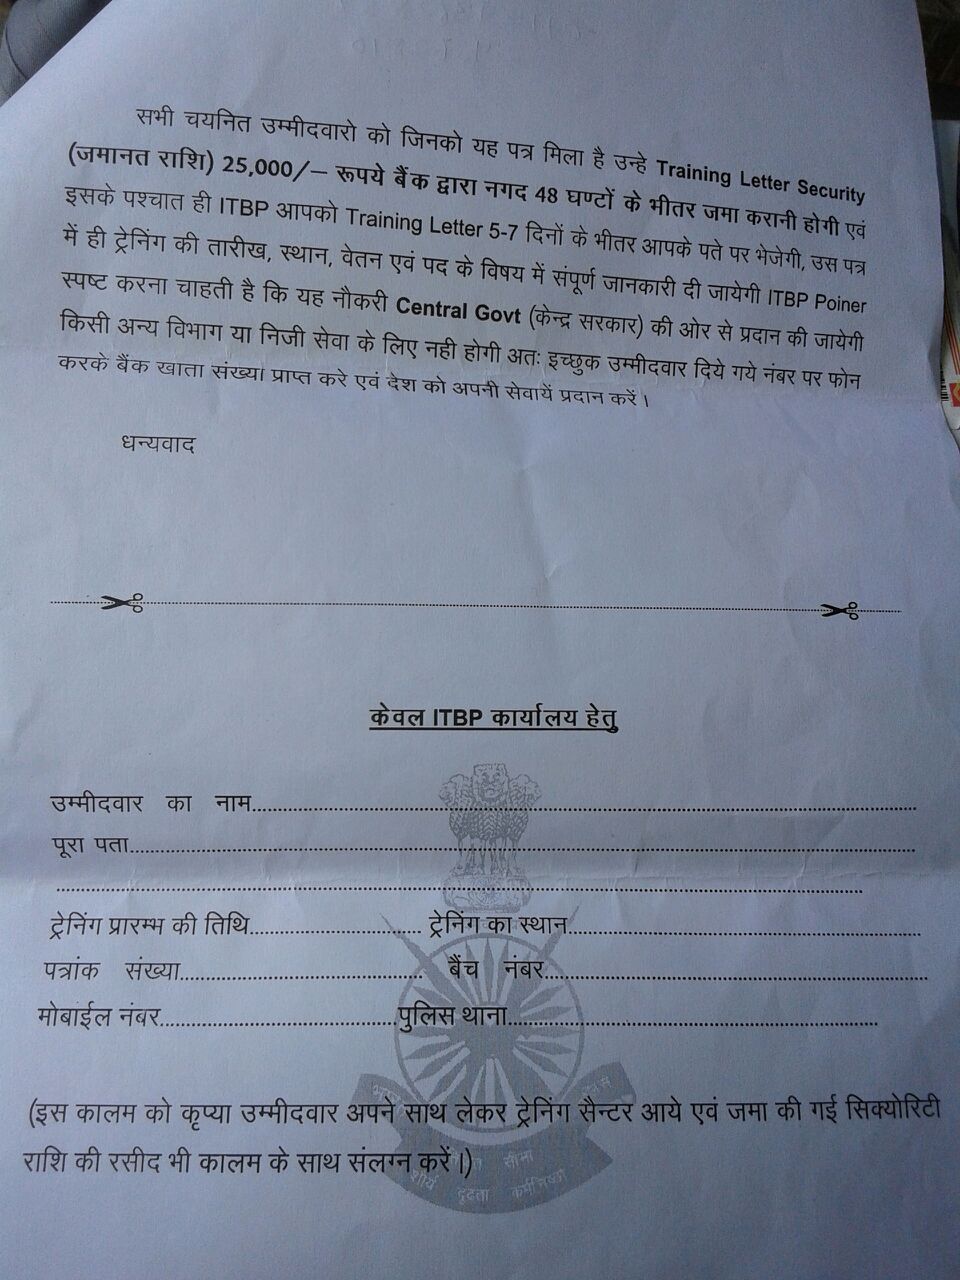 सभी चयनित उम्मीदवारो को जिनको यह पत्र मिला है उन्हे Training Letter Security
(जमानत राशि) 25,000/– रूपये बैंक द्वारा नगद 48 घण्टों के भीतर जमा करानी होगी एवं
इसके पश्चात ही ITBP आपको Training Letter 5-7 दिनों के भीतर आपके पते पर भेजेगी, उस पत्र
में ही ट्रेनिंग की तारीख, स्थान, वेतन एवं पद के विषय में संपूर्ण जानकारी दी जायेगी ITBP Poiner
स्पष्ट करना चाहती है कि यह नौकरी Central Govt (केन्द्र सरकार) की ओर से प्रदान की जायेगी
किसी अन्य विभाग या निजी सेवा के लिए नही होगी अतः इच्छुक उम्मीदवार दिये गये नंबर पर फोन
करके बैंक खाता संख्या प्राप्त करे एवं देश को अपनी सेवायें प्रदान करें।
धन्यवाद
केवल ITBP कार्यालय हेतु
उम्मीदवार का नाम
पूरा पता
ट्रेनिंग प्रारम्भ की तिथि ट्रेनिंग का स्थान
पत्रांक संख्या बैंच नंबर
मोबाईल नंबर पुलिस थाना
(इस कालम को कृप्या उम्मीदवार अपने साथ लेकर ट्रेनिंग सैन्टर आये एवं जमा की गई सिक्योरिटी
राशि की रसीद भी कालम के साथ संलग्न करें।)
शौर्य दृढता कर्मनिष्ठा